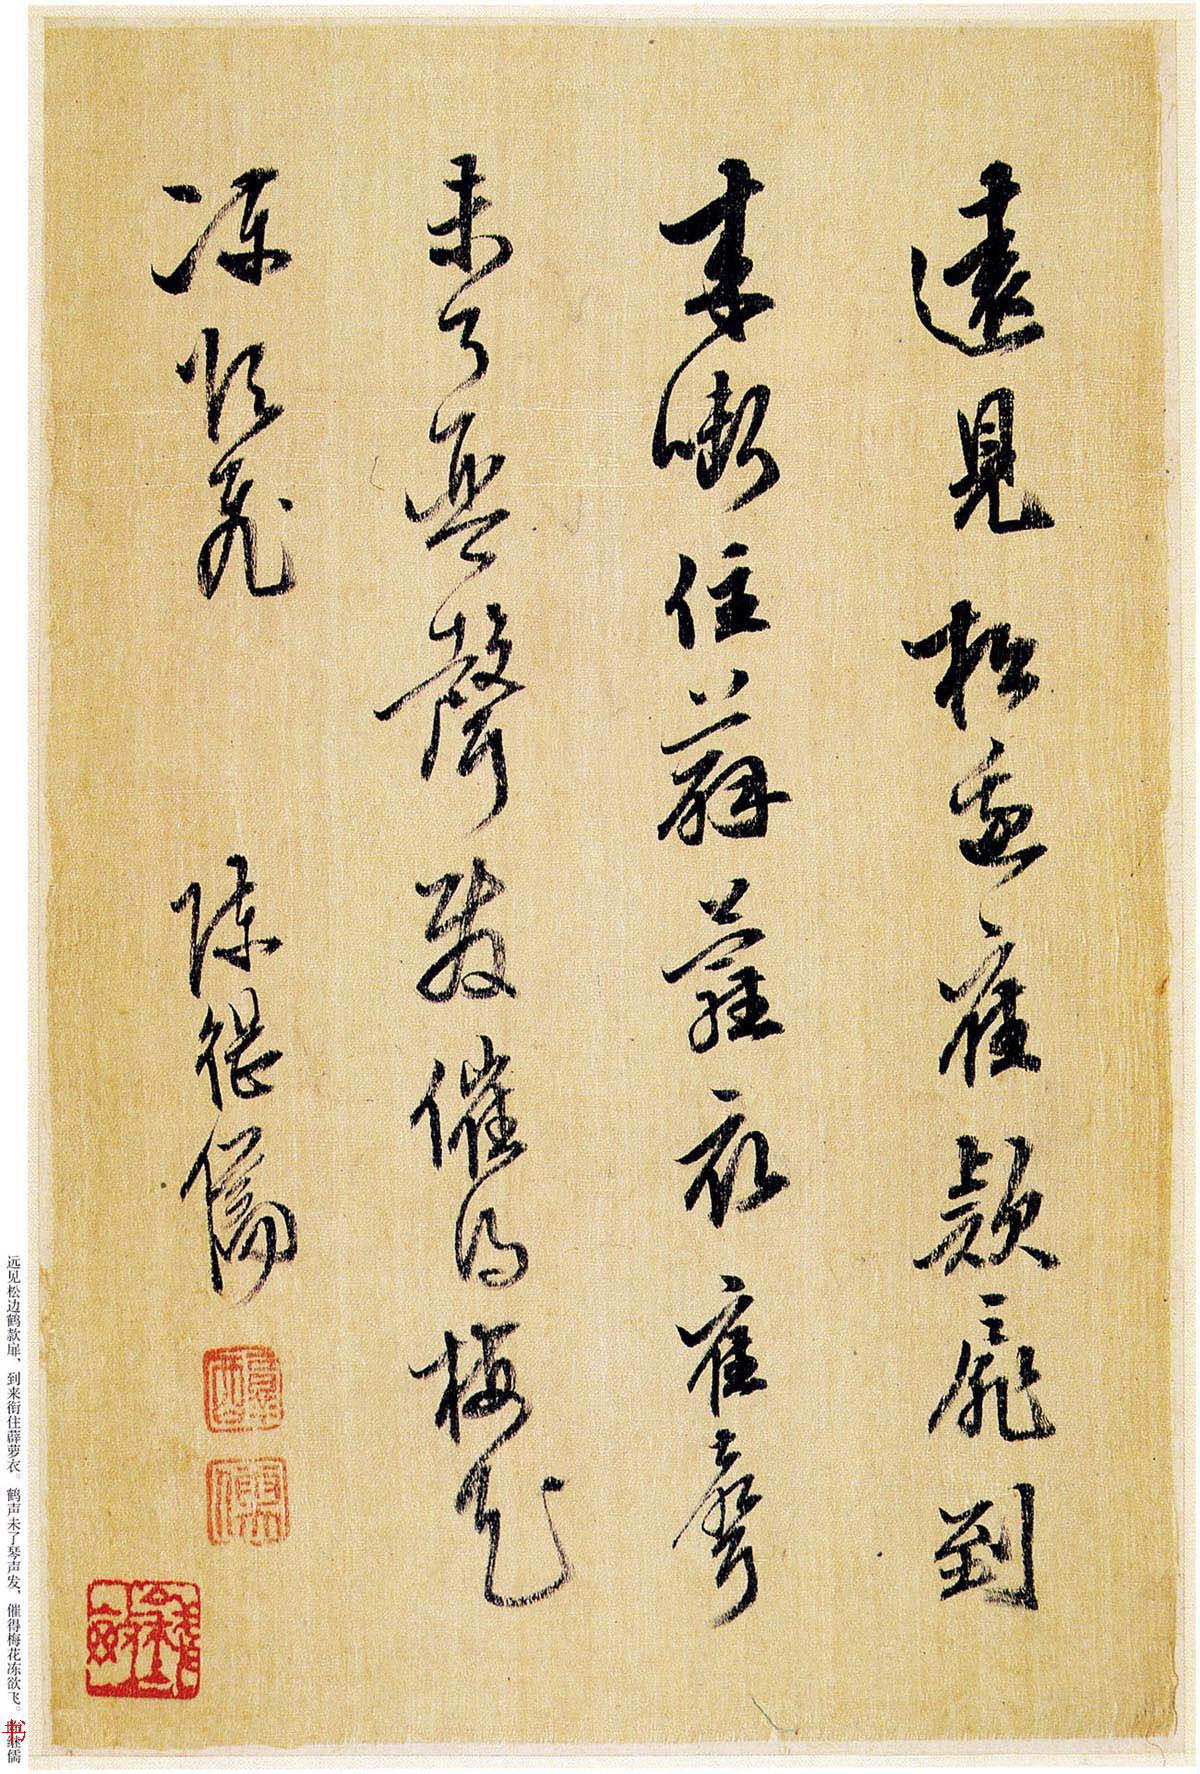 遠見松邊隺款扉到
來銜住薜蘿衣隺聲
未了琴聲發催得梅花
凍欲飛
陳繼儒
远见松边鹤款扉，到来衔住薜萝衣。鹤声未了琴声发，催得梅花冻欲飞。陈继儒
书